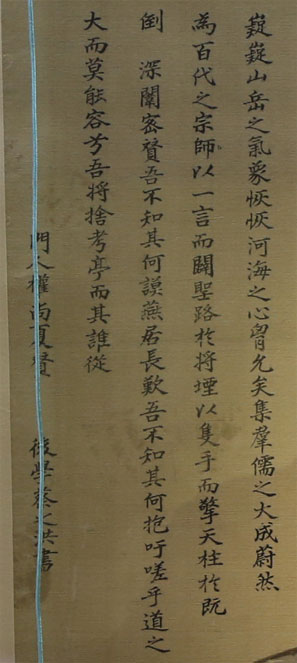 嶷嶷山岳之氣象恢恢河海之心胷允矣集羣儒之大成蔚然
為百代之宗師以一言而闢聖路於將堙以隻手而擎天柱於既
倒 深闈密贊吾不知其何謨燕居長歎吾不知其何抱吁嗟乎道之
大而莫能容方吾將捨考亭而其誰從
門人權尚夏贊 後學蔡之洪書